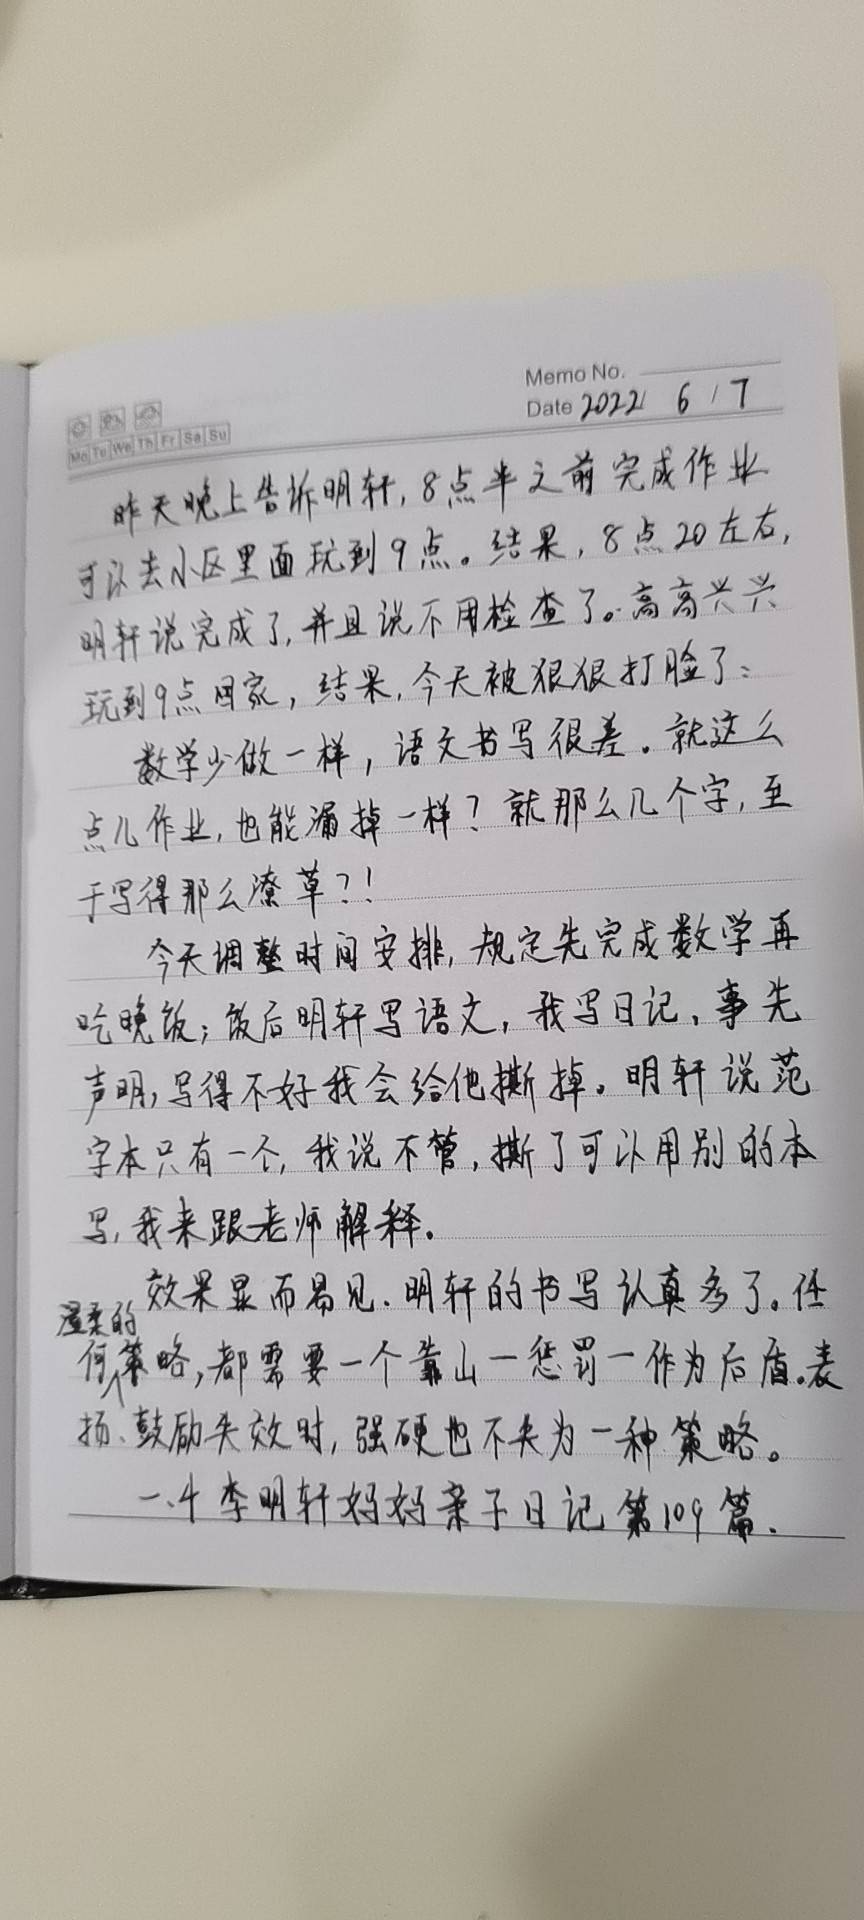 Memo No.
Date 2022 / 6 / 7
Mo Tu We Th Fr Sa Su
昨天晚上告诉明轩，8点半之前完成作业
可以去小区里面玩到9点。结果，8点20左右，
明轩说完成了，并且说不用检查了。高高兴兴
玩到9点回家，结果，今天被狠狠打脸了：
数学少做一样，语文书写很差。就这么
点儿作业，也能漏掉一样？就那么几个字，至
于写得那么潦草？！
今天调整时间安排，规定先完成数学再
吃晚饭；饭后明轩写语文，我写日记，事先
声明，写得不好我会给他撕掉。明轩说范
字本只有一个，我说不管，撕了可以用别的本
写，我来跟老师解释。
效果显而易见．明轩的书写认真多了。任
何温柔的策略，都需要一个靠山一惩罚一作为后盾。表
扬、鼓励失效时，强硬也不失为一种策略。
一．4 李明轩妈妈亲子日记第109篇．